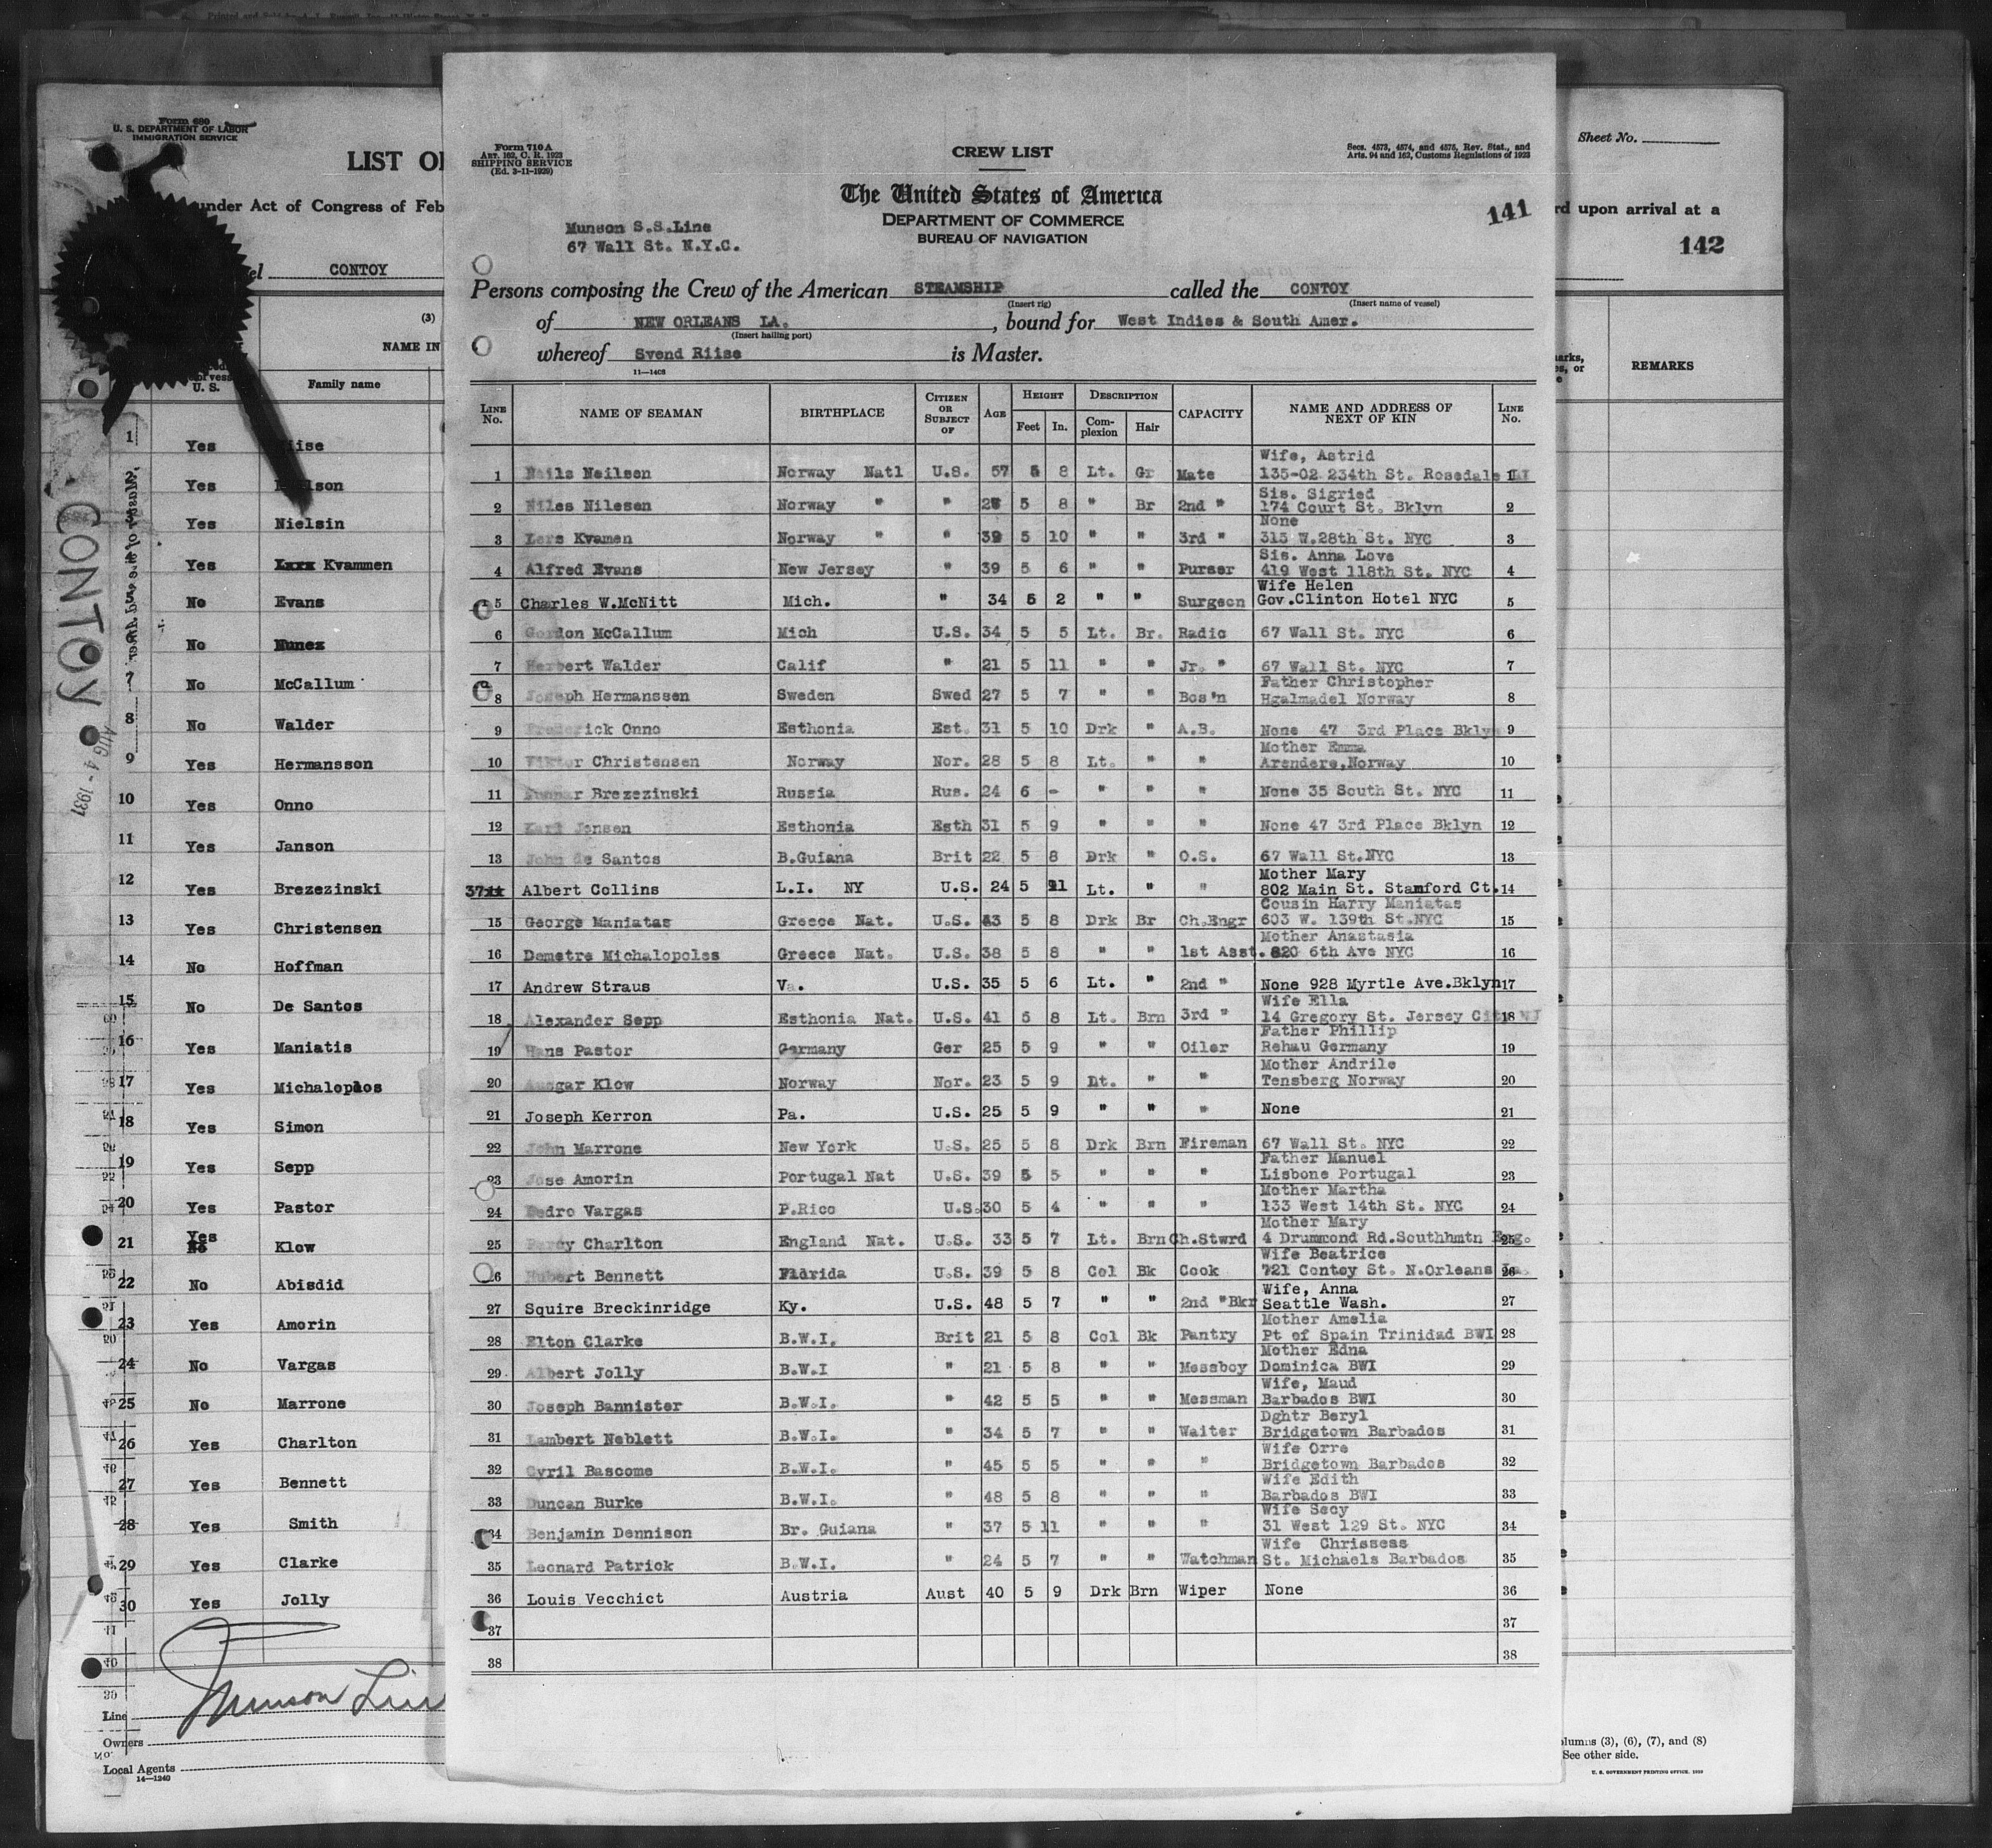 Form 680
U. S. DEPARTMENT OF LABOR
IMMIGRATION SERVICE
LIST O
under Act of Congress of Feb
CONTOY
(3)
NAME IN
U. S.
Family name
1 Yes Riise
Yes
Yes Nielsin
Yes Kvammen
No Evans
No Nunez
7 No McCallum
8 No Walder
9 Yes Hermansson
10 Yes Onno
11 Yes Janson
12 Yes Brezezinski
13 Yes Christensen
14 No Hoffman
15 No De Santos
16 Yes Maniatis
17 Yes Michaloplos
18 Yes Simon
19 Yes Sepp
20 Yes Pastor
21 Yes Klow
22 No Abisdid
23 Yes Amorin
24 No Vargas
25 No Marrone
26 Yes Charlton
27 Yes Bennett
28 Yes Smith
29 Yes Clarke
30 Yes Jolly
Munson Lin
Line
Owners
Local Agents
14—1240
CONTOY
AUG 4 - 1931
Form 710 A
Art. 162, C. R. 1923
SHIPPING SERVICE
(Ed. 3-11-1929)
CREW LIST
Secs. 4573, 4574, and 4575, Rev. Stat., and
Arts. 94 and 162, Customs Regulations of 1923
The United States of America
DEPARTMENT OF COMMERCE
BUREAU OF NAVIGATION
141
Munson S.S.Line
67 Wall St. N.Y.C.
Persons composing the Crew of the American STEAMSHIP called the CONTOY
(Insert rig) (Insert name of vessel)
of NEW ORLEANS LA. , bound for West Indies & South Amer.
(Insert hailing port)
whereof Svend Riise is Master.
11—1408
LINE No. NAME OF SEAMAN BIRTHPLACE CITIZEN OR SUBJECT OF AGE HEIGHT Feet In. DESCRIPTION Complexion Hair CAPACITY NAME AND ADDRESS OF NEXT OF KIN LINE No.
Wife, Astrid
1 Neils Neilsen Norway Natl U.S. 57 5 8 Lt. Gr Mate 135-02 234th St. Rosedale LI 1
Sis. Sigried
2 Niles Nilesen Norway " " 5 8 " Br 2nd " 174 Court St. Bklyn 2
None
3 Lars Kvamen Norway " " 39 5 10 " " 3rd " 315 W.28th St. NYC 3
Sis. Anna Love
4 Alfred Evans New Jersey " 39 5 6 " " Purser 419 West 118th St. NYC 4
Wife Helen
5 Charles W.McNitt Mich. " 34 5 2 " " Surgeon Gov.Clinton Hotel NYC 5
6 Gordon McCallum Mich U.S. 34 5 5 Lt. Br. Radio 67 Wall St. NYC 6
7 Herbert Walder Calif " 21 5 11 " " Jr. " 67 Wall St. NYC 7
Father Christopher
8 Joseph Hermanssen Sweden Swed 27 5 7 " " Bos'n Hgalmadel Norway 8
9 Frederick Onno Esthonia Est. 31 5 10 Drk " A.B. None 47 3rd Place Bklyn 9
Mother Emma
10 Viktor Christensen Norway Nor. 28 5 8 Lt. " " Arendere,Norway 10
11 Brezezinski Russia Rus. 24 6 - " " " None 35 South St. NYC 11
12 Karl Jensen Esthonia Esth 31 5 9 " " " None 47 3rd Place Bklyn 12
13 John de Santos B.Guiana Brit 22 5 8 Drk " O.S. 67 Wall St.NYC 13
Mother Mary
37 Albert Collins L.I. NY U.S. 24 5 11 Lt. " " 802 Main St. Stamford Ct. 14
Cousin Harry Maniatas
15 George Maniatas Greece Nat. U.S. 43 5 8 Drk Br Ch.Engr 603 W. 139th St.NYC 15
Mother Anastasia
16 Demetre Michalopoles Greece Nat. U.S. 38 5 8 " " 1st Asst. 820 6th Ave NYC 16
17 Andrew Straus Va. U.S. 35 5 6 Lt. " 2nd " None 928 Myrtle Ave.Bklyn 17
Wife Ella
18 Alexander Sepp Esthonia Nat. U.S. 41 5 8 Lt. Brn 3rd " 14 Gregory St. Jersey City NJ 18
Father Phillip
19 Hans Pastor Germany Ger 25 5 9 " " Oiler Rehau Germany 19
Mother Andrile
20 Ansgar Klow Norway Nor. 23 5 9 Lt. " " Tensberg Norway 20
21 Joseph Kerron Pa. U.S. 25 5 9 " " " None 21
22 John Marrone New York U.S. 25 5 8 Drk Brn Fireman 67 Wall St. NYC 22
Father Manuel
23 Jose Amorin Portugal Nat U.S. 39 5 5 " " " Lisbone Portugal 23
Mother Martha
24 Pedro Vargas P.Rico U.S. 30 5 4 " " " 133 West 14th St. NYC 24
Mother Mary
25 Percy Charlton England Nat. U.S. 33 5 7 Lt. Brn Ch.Stwrd 4 Drummond Rd.Southhmtn Eng. 25
Wife Beatrice
26 Hubert Bennett Florida U.S. 39 5 8 Col Bk Cook 721 Contoy St. N.Orleans La. 26
Wife, Anna
27 Squire Breckinridge Ky. U.S. 48 5 7 " " 2nd "Bkr Seattle Wash. 27
Mother Amelia
28 Elton Clarke B.W.I. Brit 21 5 8 Col Bk Pantry Pt of Spain Trinidad BWI 28
Mother Edna
29 Albert Jolly B.W.I " 21 5 8 " " Messboy Dominica BWI 29
Wife, Maud
30 Joseph Bannister B.W.I. " 42 5 5 " " Messman Barbados BWI 30
Dghtr Beryl
31 Lambert Neblett B.W.I. " 34 5 7 " " Waiter Bridgetown Barbados 31
Wife Orre
32 Cyril Bascome B.W.I. " 45 5 5 " " " Bridgetown Barbados 32
Wife Edith
33 Duncan Burke B.W.I. " 48 5 8 " " " Barbados BWI 33
Wife Secy
34 Benjamin Dennison Br. Guiana " 37 5 11 " " " 31 West 129 St. NYC 34
Wife Chrissess
35 Leonard Patrick B.W.I. " 24 5 7 " " Watchman St. Michaels Barbados 35
36 Louis Vecchict Austria Aust 40 5 9 Drk Brn Wiper None 36
37 37
38 38
Sheet No.
rd upon arrival at a
142
REMARKS
olumns (3), (6), (7), and (8)
See other side.
U. S. GOVERNMENT PRINTING OFFICE